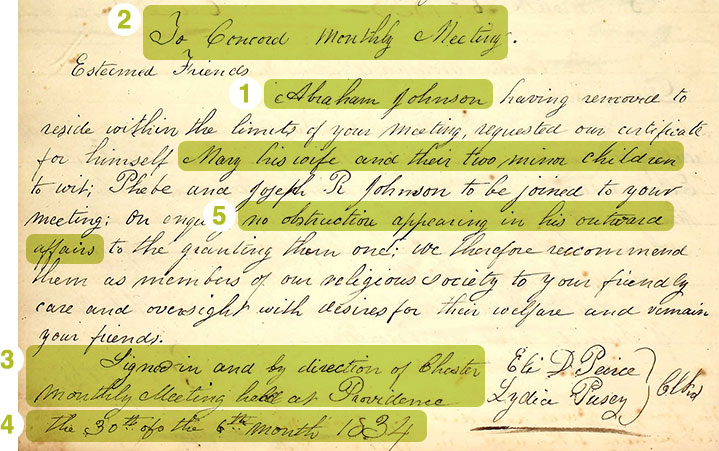 2
To Concord Monthly Meeting.
Esteemed Friends
1 Abraham Johnson having removed to
reside within the limits of your meeting, requested our certificate
for himself Mary his wife and their two minor children
to wit; Phebe and Joseph R Johnson to be joined to your
meeting; On enqu 5 no obstruction appearing in his outward
affairs to the granting them one; we therefore reccommend
them as members of our religious society to your friendly
care and oversight with desires for their welfare and remain
your friends.
3 Signed in and by direction of Chester Eli D Peirce
monthly Meeting held at Providence Lydia Pusey Clks
4 the 30th of the 6th month 1834